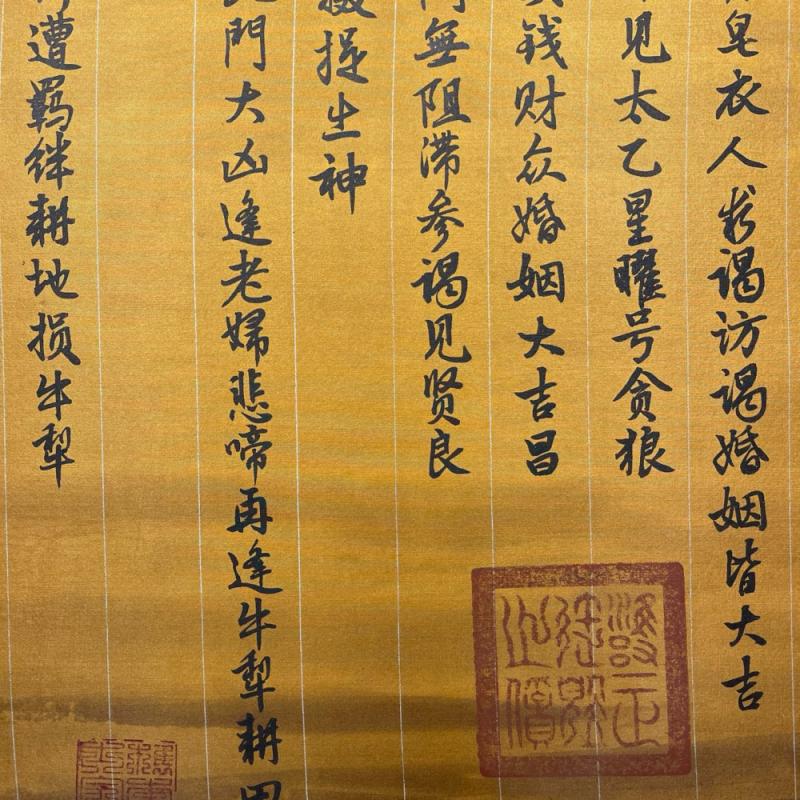 皂衣人求谒访谒婚姻皆大吉
见太乙星曜号贪狼
钱财众婚姻大吉昌
無阻滞参谒见贤良
提生神
門大凶逢老婦悲啼再逢牛犁耕田
遭羁绊耕地损牛犁